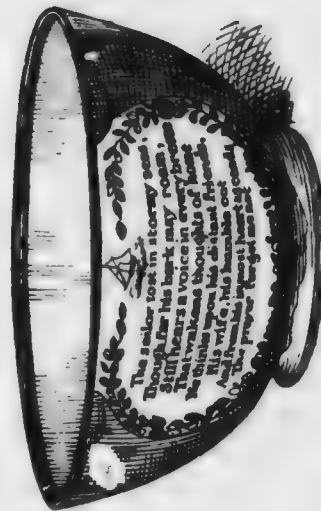 The sailor tost in stormy seas,
Though far his bark may roam,
Still hears a voice in every breeze
That wakens thoughts of home.
He thinks upon his distant friends,
His wife, his humble cot
And from his inmost heart ascends
The prayer Forget me not